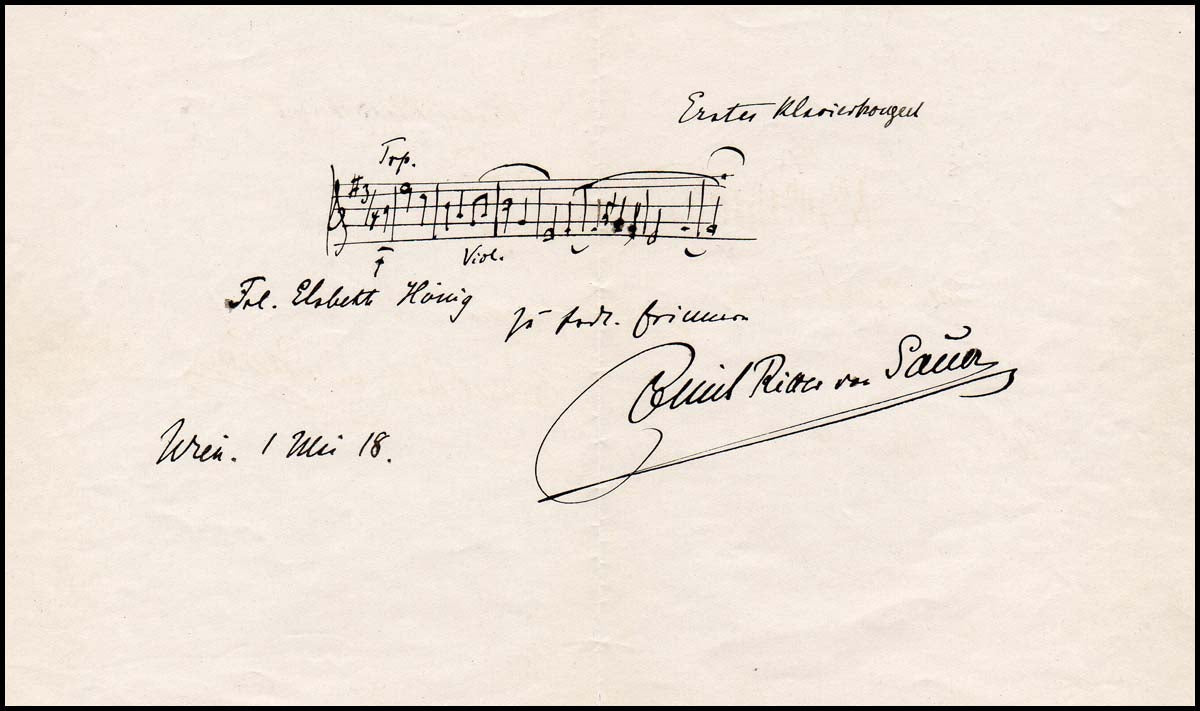 Erstes Klavierkonzert
Trp.
3
4
p
Viol.
Frl. Elsbeth Hönig
zu frdl. Erinnern
Emil Ritter von Sauer
Wien. 1 Mai 18.